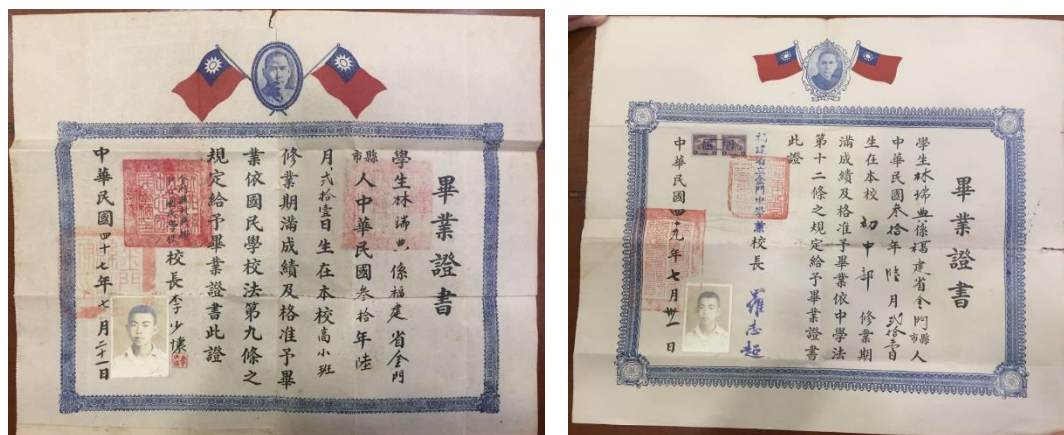 畢業證書
學生林瑞典係福建省金門
縣
市
人中華民國參拾年陸
月貳拾壹日生在本校高小班
修業期滿成績及格准予畢
業依國民學校法第九條之
規定給予畢業證書此證
校長李少懷
中華民國四十七年七月二十一日
畢業證書
學生林瑞典係福建省金門
縣
市
人
中華民國參拾年陸月貳拾壹日
生在本校初中部修業期
滿成績及格准予畢業依中學法
第十二條之規定給予畢業證書
此證
校長羅志超
中華民國四十九年七月卅一日